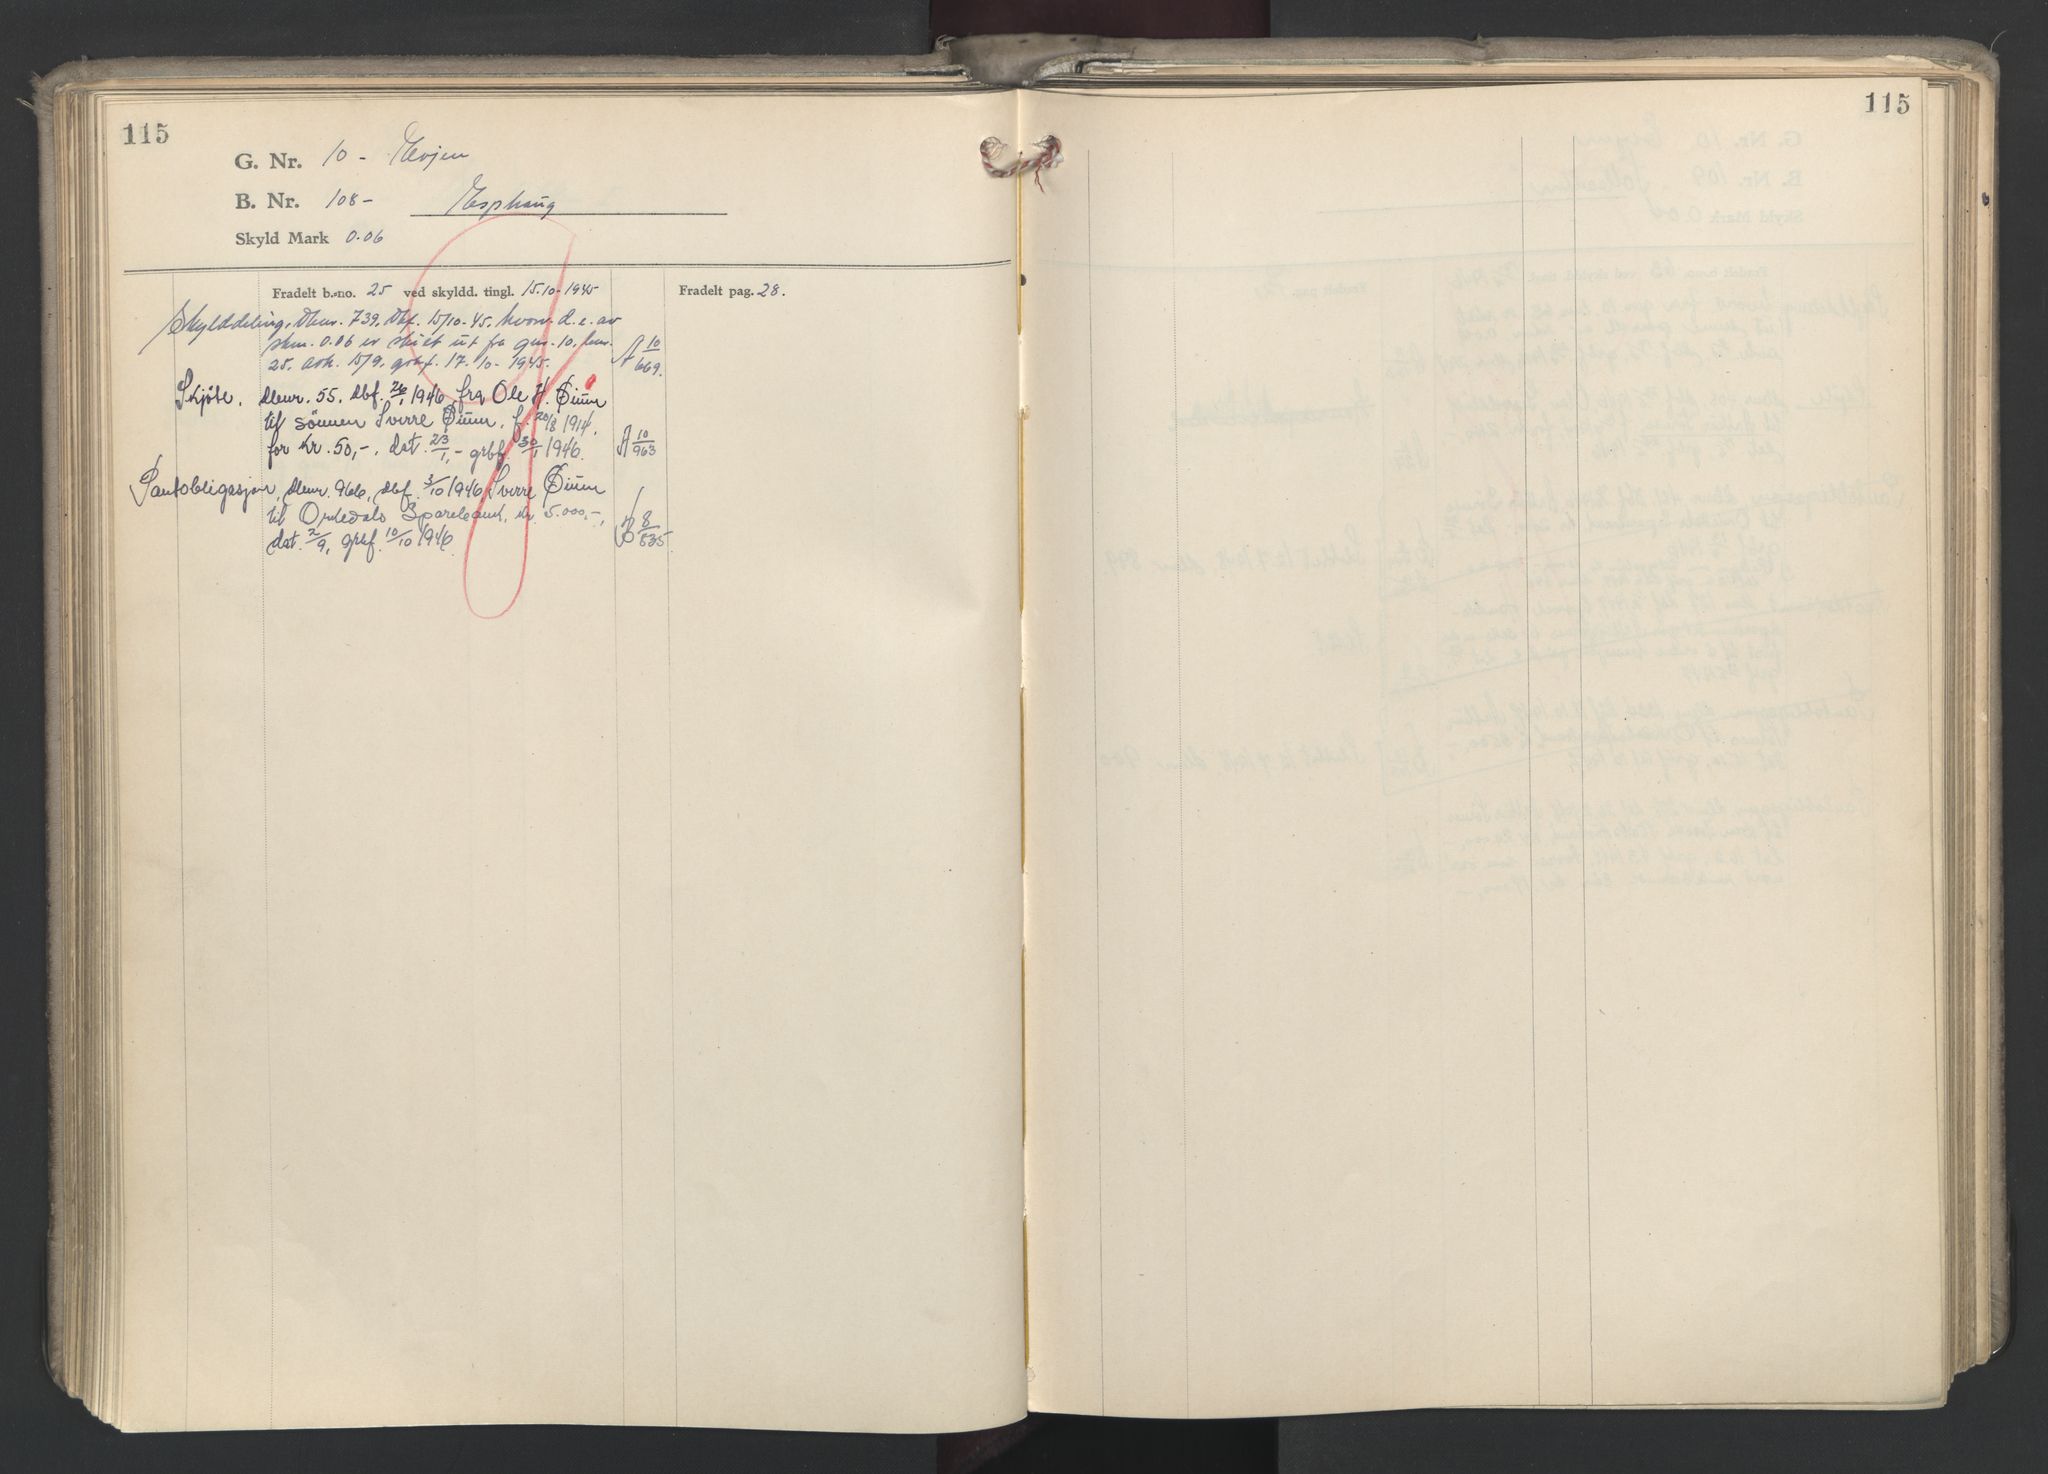 115
G. Nr. 10 - Evjen
B. Nr. 108 - Esphaug
Skyld Mark 0.06
Fradelt b.-no. 25 ved skyldd. tingl. 15.10-1945
Fradelt pag. 28.
Skylddeling, dbnr. 739, dbf. 15/10-45, hvorv. d. e. av
skm. 0.06 er skilt ut fra gnr. 10, bnr.
25. avh. 15/9, grbf. 17.10-1945. A 10/669.
Skjöte, dbnr. 55, dbf. 26/1 1946, fra Ole H. Öium
til sönnen Sverre Öium, f. 20/8 1914,
for kr. 50,-, dat. 23/1,- grbf. 30/1 1946. A 10/963
Pantobligasjon, dbnr. 966, dbf. 3/10 1946 Sverre Öium
til Orkedals Sparebank, kr. 5.000,-,
dat. 2/9, grbf. 10/10 1946. 8/535.
115